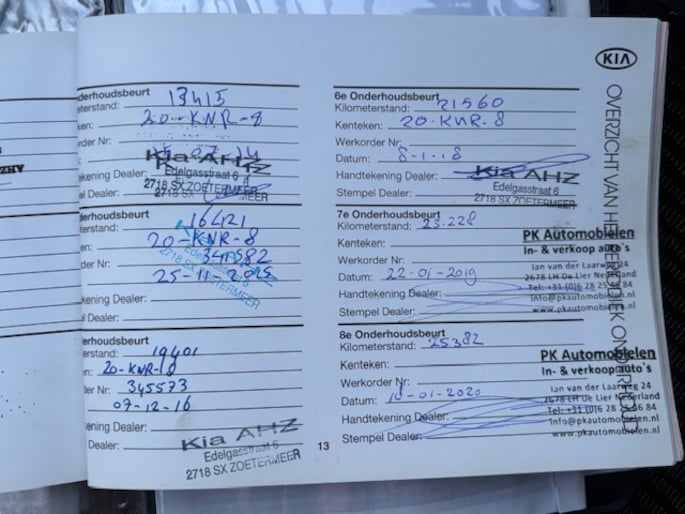 ZHV
derhoudsbeurt
eterstand: 13415
ken: 20-KNR-8
der Nr:
ekening Dealer: Kia AHZ
Edelgasstraat 6
el Dealer: 2718 SX ZOETERMEER
derhoudsbeurt
erstand: 16421
ken: 20-KNR-8
der Nr: 341582
Kia AHZ
Edelgasstraat 6
2718 SX ZOETERMEER
kening Dealer:
el Dealer:
erhoudsbeurt
erstand: 19401
n: 20-KNR-8
der Nr: 345573
07-12-16
ening Dealer:
Dealer: Kia AHZ
Edelgasstraat 6
2718 SX ZOETERMEER
13
6e Onderhoudsbeurt
Kilometerstand: 21560
Kenteken: 20-KNR-8
Werkorder Nr:
Datum: 8-1-18
Handtekening Dealer: Kia AHZ
Edelgasstraat 6
Stempel Dealer: 2718 SX ZOETERMEER
7e Onderhoudsbeurt
Kilometerstand: 23.228
Kenteken:
Werkorder Nr:
Datum: 22-01-2019
Handtekening Dealer:
Stempel Dealer:
PK Automobielen
In- & verkoop auto's
Jan van der Laarweg 24
2678 LH De Lier Nederland
Tel: +31 (0)6 28 25 46 84
info@pkautomobielen.nl
www.pkautomobielen.nl
8e Onderhoudsbeurt
Kilometerstand: 25382
Kenteken:
Werkorder Nr:
Datum: 10-01-2020
Handtekening Dealer:
Stempel Dealer:
PK Automobielen
In- & verkoop auto's
Jan van der Laarweg 24
2678 LH De Lier Nederland
Tel: +31 (0)6 28 25 46 84
info@pkautomobielen.nl
www.pkautomobielen.nl
KIA
OVERZICHT VAN HET PERIODIEK ONDERHOUD